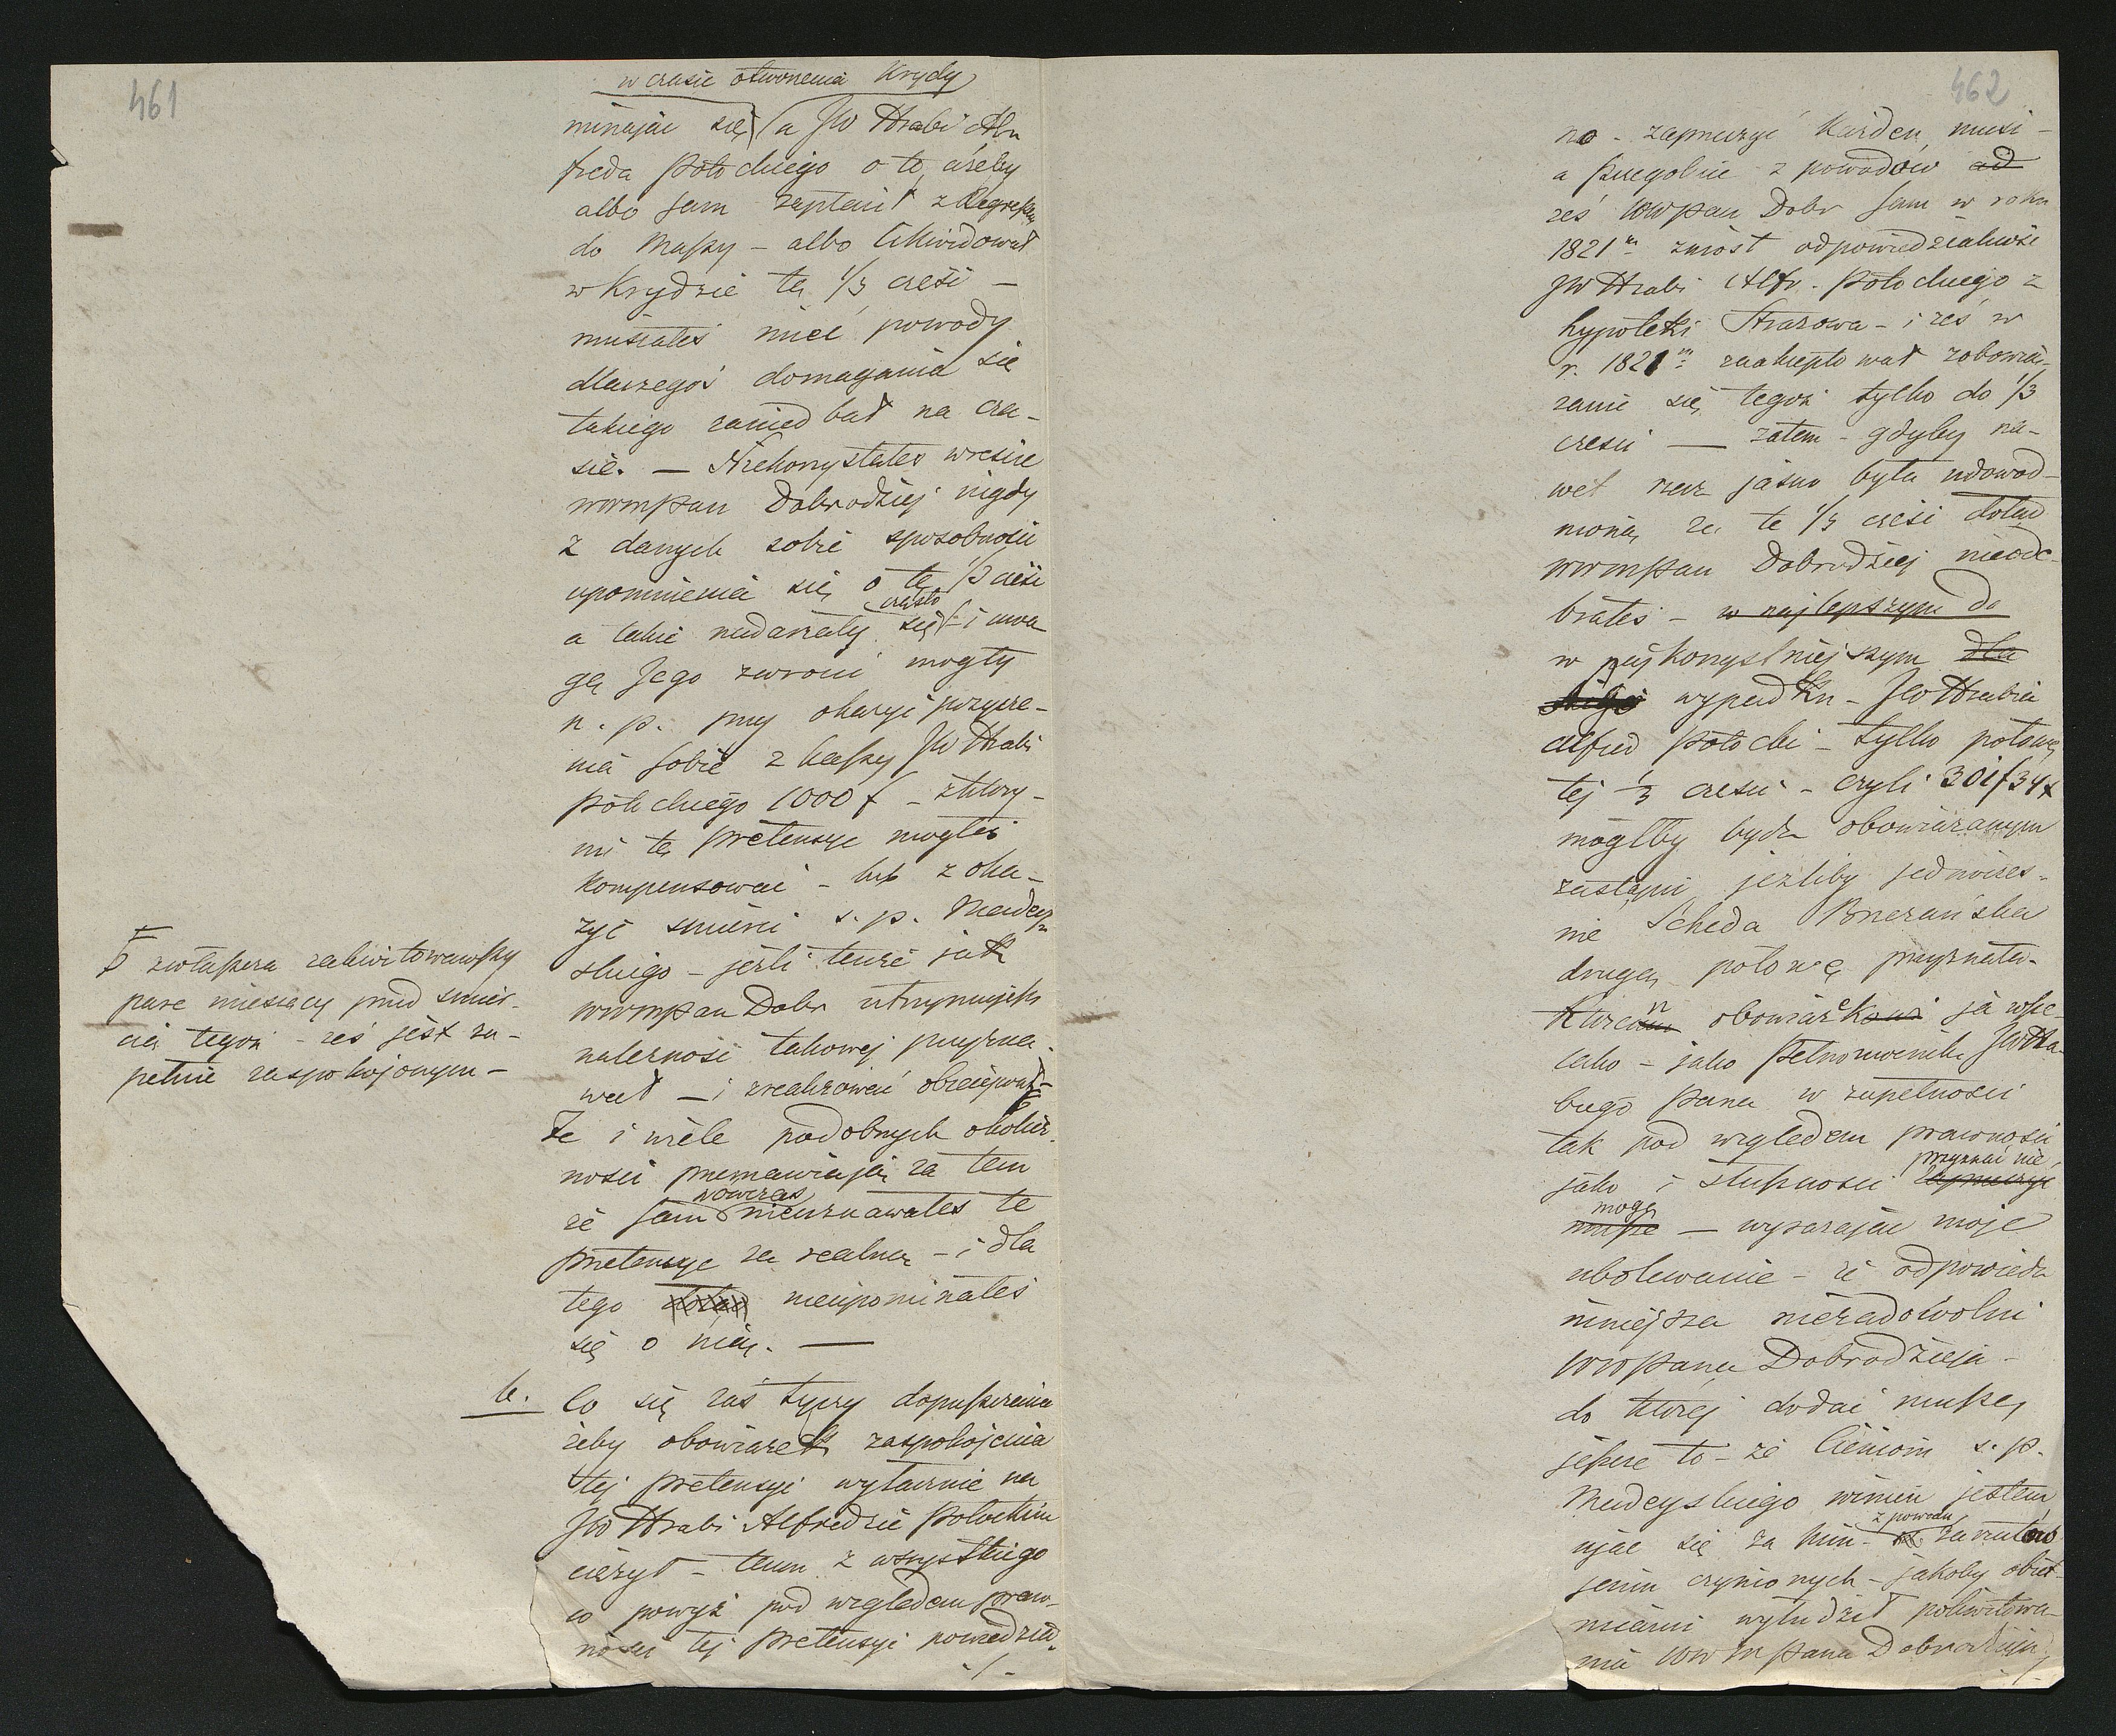 461
w czasie otworzenia Krydy
minając się a JW Hrabi Al
freda Potockiego o to, ażeby
albo sam zapłacił z Regressem
do Massy – albo likwidował
w Krydzie tę 1/3 części –
musiałeś mieć powody
dlaczegoś domagania się
takiego zaniedbał na cza-
sie. – Niekorzystałeś wresicie
WWmPan Dobrodziej nigdy
z danych sobie sposobności
upomnienia się o tę 1/3 części
a takie nadarzały się często i uwa
gę Jego zwrócić mogły
n. p. przy okazyi pożycze-
nia sobie z kassy JW Hrabi
Potockiego 1000 f – z który-
mi tę pretensye mogłeś
kompensować – lub z oka-
zyi śmierci s. p. Madey
skiego – jeżli tenże jak
WWmPan Dobr utrzymujesz
należność takowej przyzna-
wał – i zrealizować obiecywał –
Ϝ zwłaszcza zakwitowawszy
parę miesięcy przed śmier-
cią tegoż – żeś jest zu-
pełnie zaspokojonym –
Te i wiele podobnych okolicz-
ności przemawiają za tem
że sam wowczas nieuznawałeś te
pretensye za realną – i dla
tego nieupominałeś
się o nią. –
6. Co się zaś tyczy dopuszczenia
żeby obowiązek zaspokojenia
tej pretensyi wyłącznie na
JW Hrabi Alfredzie Potockim
ciężył – temu z wszystkiego
co powyż pod względem praw-
ności tej pretensyi powiedzia-
./.
462
no – zaprzeczyć każden musi –
a szczególnie z powodów ad
żeś WWPan Dobr sam w roku
1821m zniósł odpowiedzialność
JW Hrabi Alfr. Potockiego z
hypoteki Strazowa – i żeś w
r. 1821m zaakcepto wał zobowią-
zanie się tegoż tylko do 1/3
części — zatem – gdyby na-
wet rzecz jasno była udowod-
nioną, że te 1/3 części dotąd
WWmPan Dobrodziej nieode-
brałeś – w najlepszym da
w najkorzystniejszym dla
wypadku – JW Hrabia
Alfred Potocki – tylko połowę
tej 1/3 części – czyli 301 f 34 x
mógłby bydz obowiązanym
zastąpić jeżliby jednocześ-
nie Scheda Brzezańska
drugą połowę przyznała.
obowiązek ja wsze-
lako – jako Pełnomocnik JW Hra-
biego Pana w zupełności
tak pod względem prawności
jako i słuszności zaprzeczyć przyznać nie
muszę mogę – wyrażając moje
ubolewanie – że odpowiedz
niniejsza niezadowolni
WWPana Dobrodzieja –
do której dodać muszę,
jeszcze to – że Cieniom s. p.
Madeyskiego winien jestem
ująć się za nim – z powodu zarzutów
jemu czynionych – jakoby obiet-
nicami wyłudził pokwitowa-
nie WWmPana Dobrodzieja